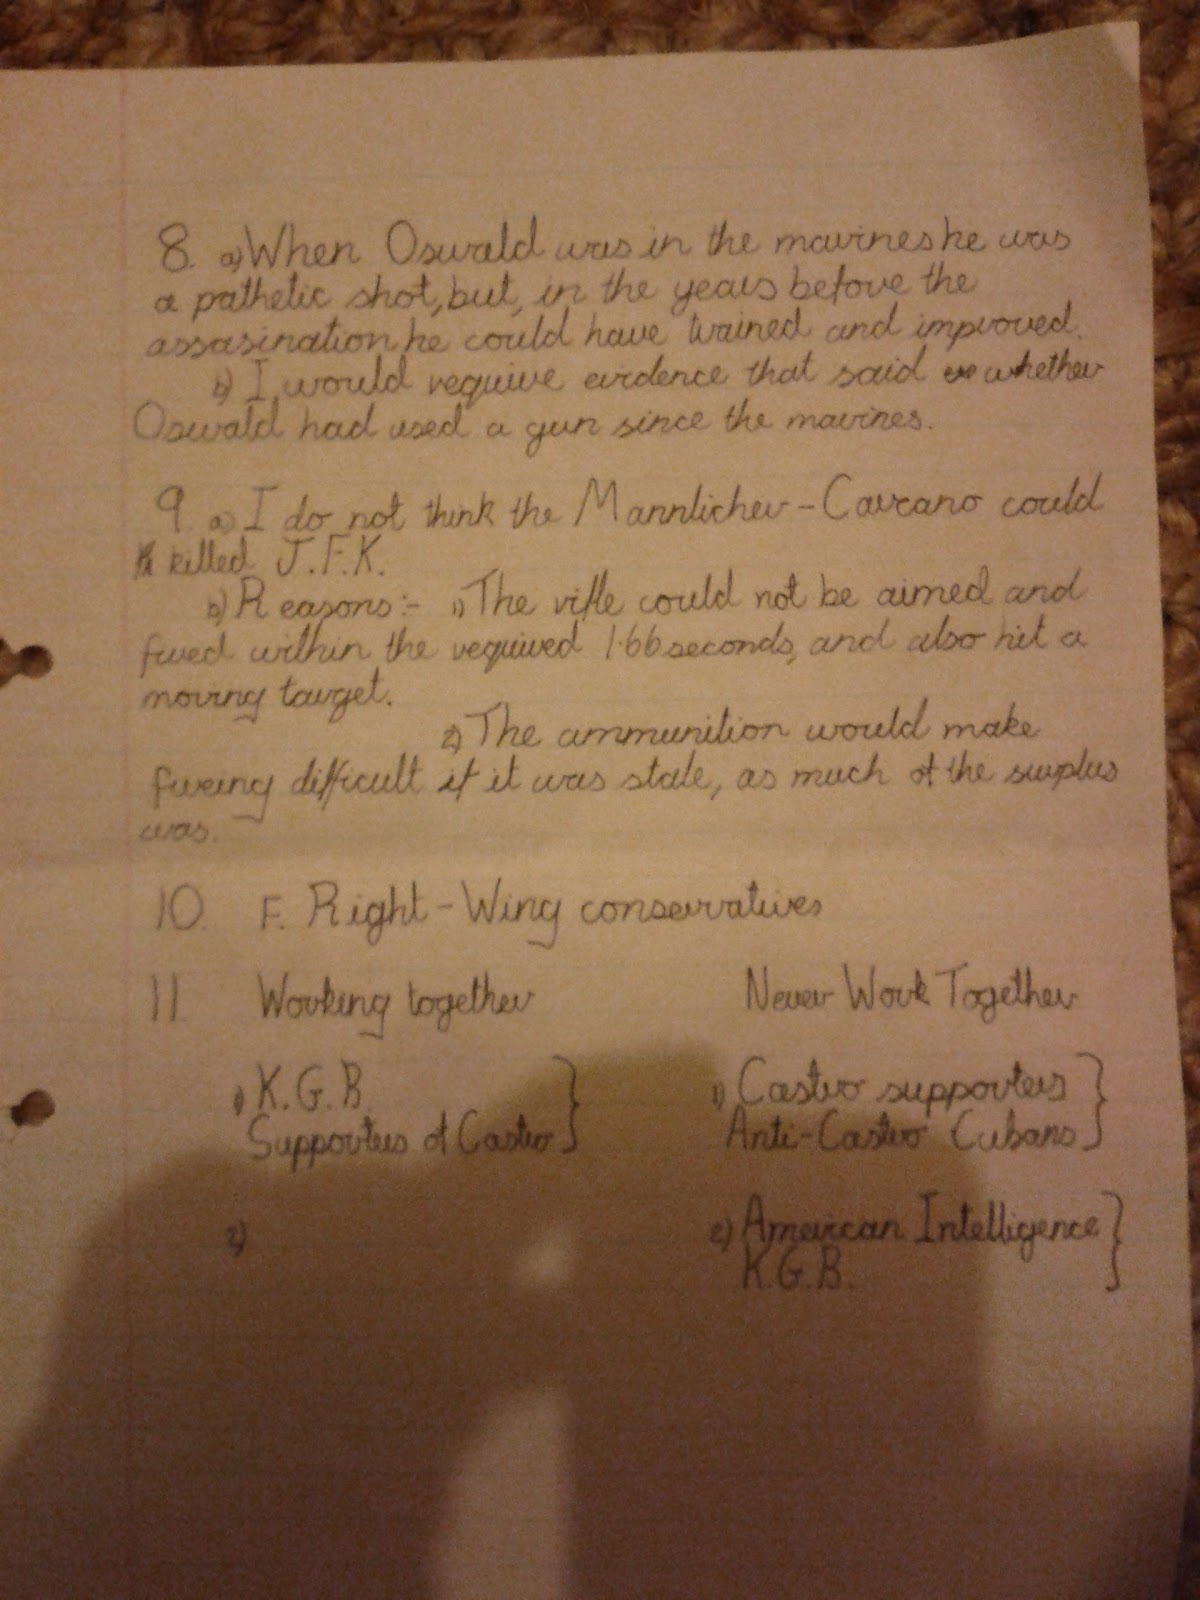 8. a) When Oswald was in the marines he was
a pathetic shot, but, in the years before the
assasination he could have trained and improved.
b) I would require evidence that said whether
Oswald had used a gun since the marines.
9. a) I do not think the Mannlicher-Carcano could
killed J.F.K.
b) Reasons:- 1) The rifle could not be aimed and
fired within the required 1.66 seconds, and also hit a
moving target.
2) The ammunition would make
firing difficult if it was stale, as much of the surplus
was.
10. F. Right-Wing conservatives
11 Working together Never Work Together
1) K.G.B. } 1) Castro supporters }
Supporters of Castro Anti-Castro Cubans
2) 2) American Intelligence }
K.G.B.